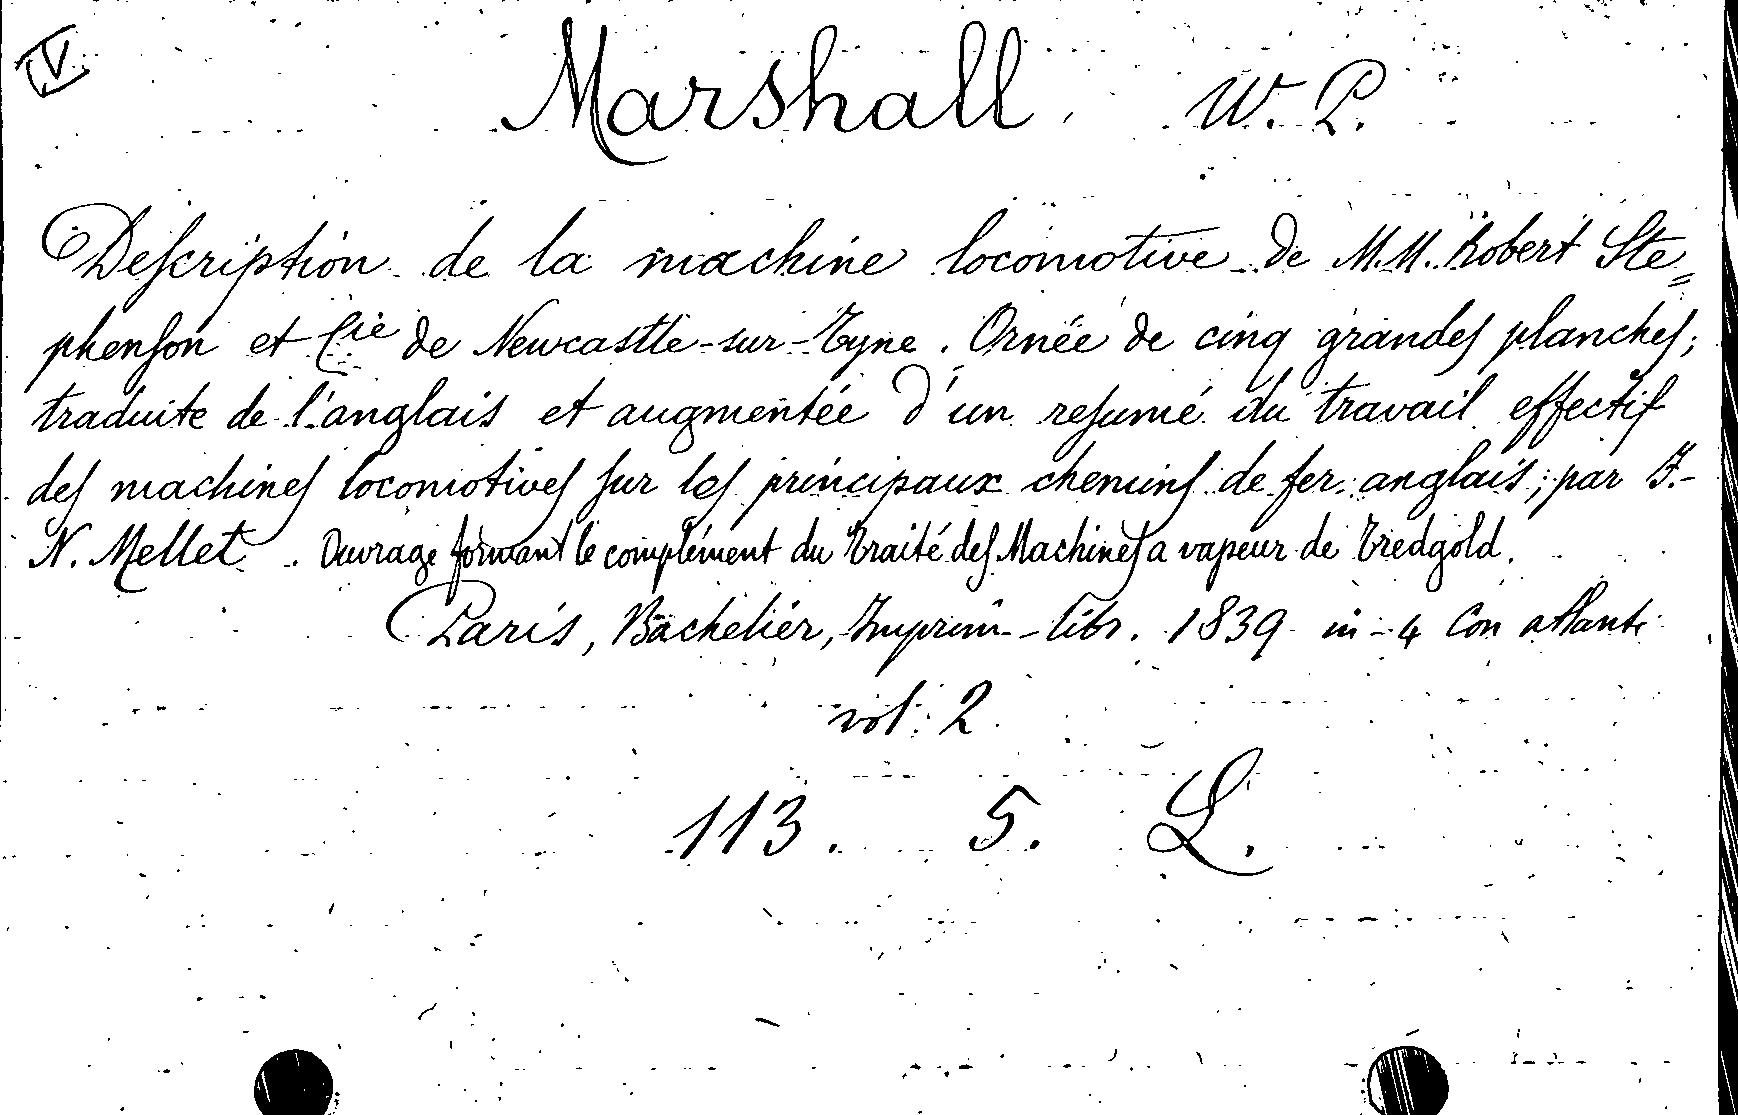 V
Marshall, W. P.
Description de la machine locomotive de M.M. Robert Ste=
phenson et Cie de Newcastle-sur-Tyne. Ornée de cinq grandes planches;
traduite de l'anglais et augmentée d'un resumé du travail effectif
des machines locomotives sur les principaux chemins de fer anglais; par F.-
N. Mellet. Ouvrage formant le complément du Traité des Machines a vapeur de Tredgold.
Paris, Bachelier, Imprim-libr. 1839 in-4 Con atlante
vol: 2
113. 5. L.